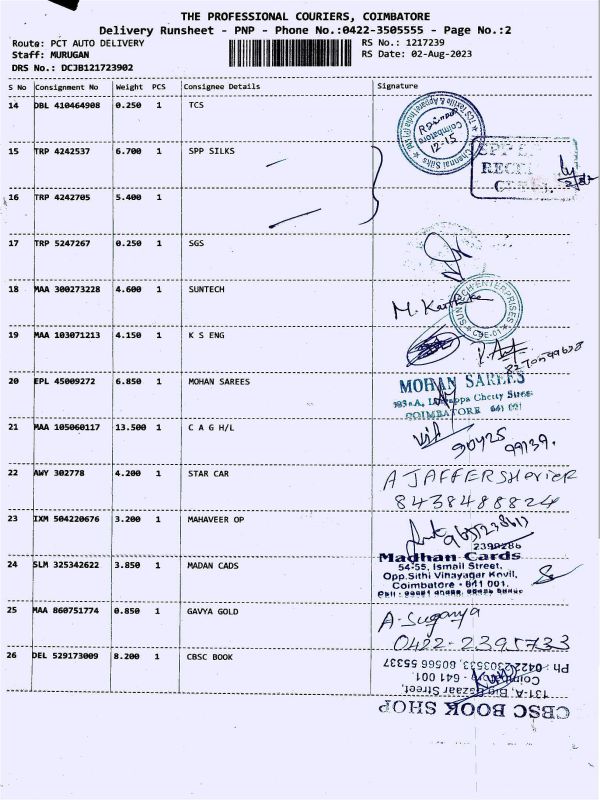 THE PROFESSIONAL COURIERS, COIMBATORE
Delivery Runsheet - PNP - Phone No.:0422-3505555 - Page No.:2
Route: PCT AUTO DELIVERY
RS No.: 1217239
Staff: MURUGAN
RS Date: 02-Aug-2023
DRS No.: DCJB121723902
S No Consignment No Weight PCS Consignee Details Signature
14 DBL 410464908 0.250 1 TCS
Coimbatore
12-15
Chennai Silks
15 TRP 4242537 6.700 1 SPP SILKS
16 TRP 4242705 5.400 1
17 TRP 5247267 0.250 1 SGS
18 MAA 300273228 4.600 1 SUNTECH
M. Karthika
SUNTECH ENTERPRISES
CBE-01
19 MAA 103071213 4.150 1 K S ENG
20 EPL 45009272 6.850 1 MOHAN SAREES
MOHAN SAREES
Chetty Street
COIMBATORE 641 001
21 MAA 105060117 13.500 1 C A G H/L
90425
99139.
22 AWY 302778 4.200 1 STAR CAR
A JAFFER Sherier
8438488824
23 IXM 504220676 3.200 1 MAHAVEER OP
9655238613
2399286
24 SLM 325342622 3.850 1 MADAN CADS
Madhan Cards
54-55, Ismail Street,
Opp.Sithi Vinayagar Kovil,
Coimbatore - 641 001.
25 MAA 860751774 0.850 1 GAVYA GOLD
A-Suganya
0422-2395733
26 DEL 529173009 8.200 1 CBSC BOOK
CBSC BOOK SHOP
131-A, Big Bazaar Street,
Coimbatore - 641 001.
Ph : 0422-2303533, 80566 55337